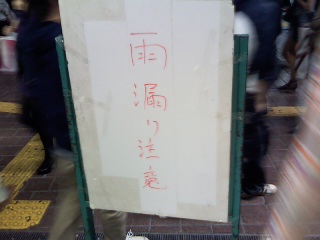 雨漏り注意